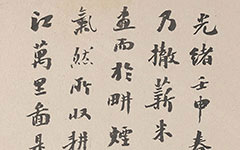 光緒壬申春
乃撤薪米
畫而於畊煙
氣然所收耕
江萬里啚